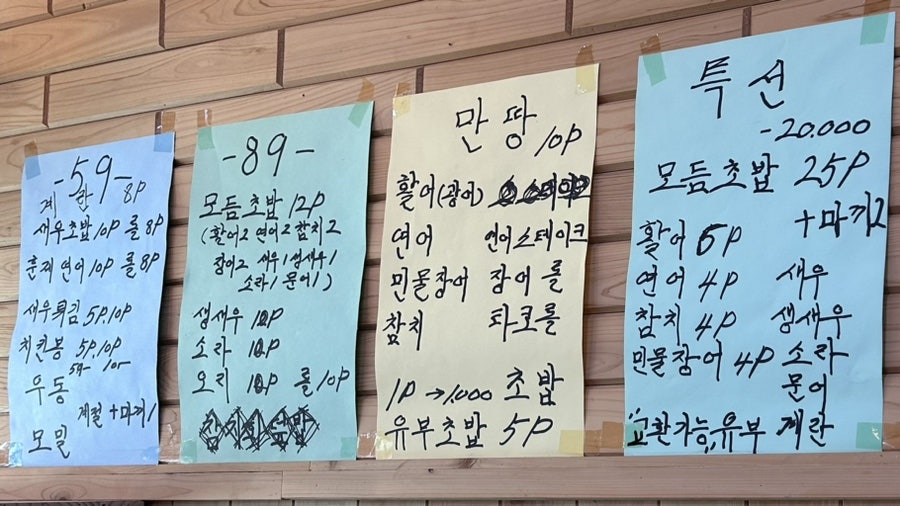 -59-
계란 8P
새우초밥 10P 롤 8P
훈제연어 10P 롤 8P
새우튀김 5P.10P
치킨봉 5P.10P
우동
계절+마끼1
모밀
-89-
모듬초밥 12P
(활어2 연어2 참치2
장어2 새우1 생새우1
소라1 문어1)
생새우 10P
소라 10P
오리 10P 롤 10P
만땅 10P
활어(광어)
연어 연어스테이크
민물장어 장어롤
참치 타코롤
1P→1,000 초밥
유부초밥 5P
특선
-20.000
모듬초밥 25P
+마끼2
활어 5P
연어 4P 새우
참치 4P 생새우
민물장어 4P 소라
문어
교환가능, 유부 계란